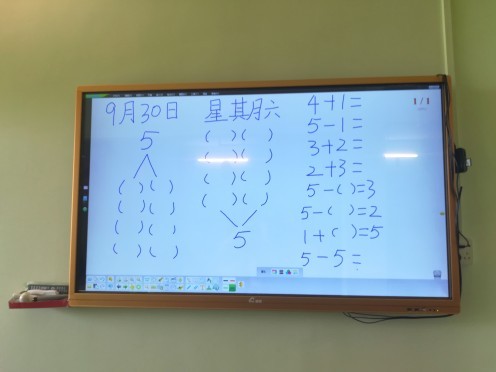 9月30日 星期六
5
( )( )
( )( )
( )( )
( )( )
( )( )
( )( )
( )( )
( )( )
5
4+1=
5-1=
3+2=
2+3=
5-( )=3
5-( )=2
1+( )=5
5-5=
1/1